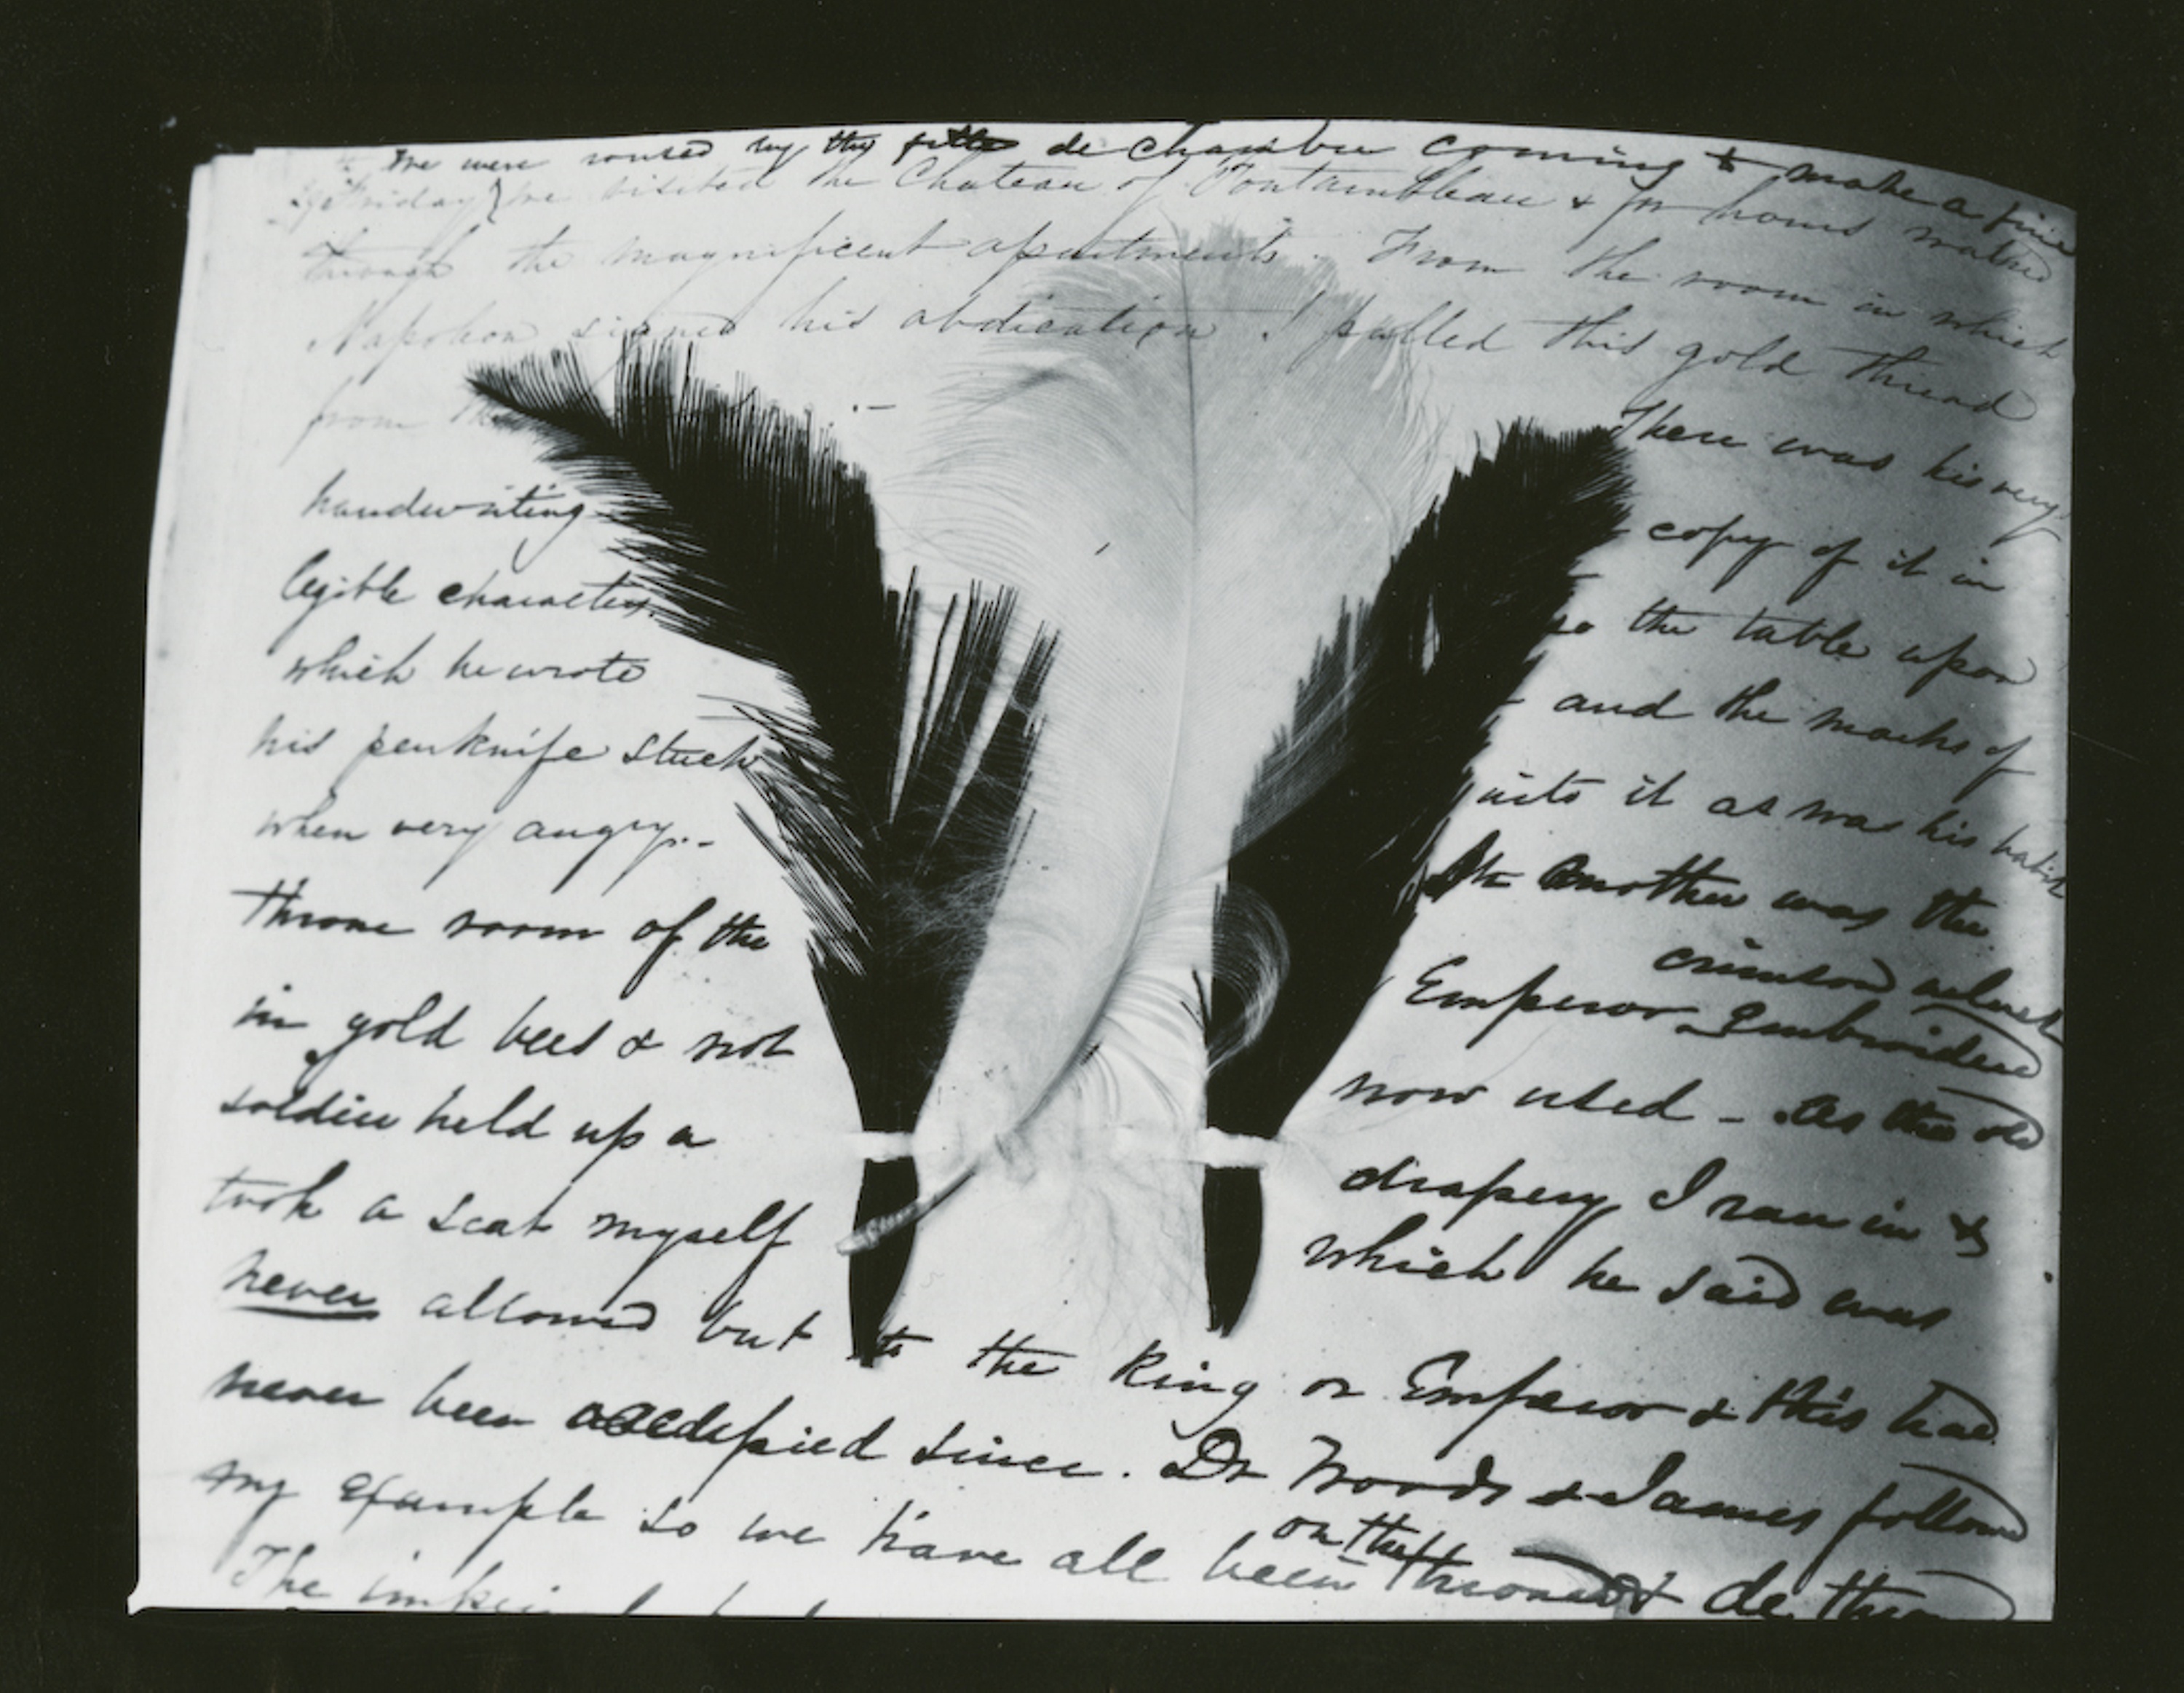 We were roused by the fille de chambre coming to make a fire
Friday we visited the Chateau of Fontainbleau & for hours walked
through the magnificent apartments. From the room in which
Napoleon signed his abdication I pulled this gold thread
from the There was his very
handwriting copy of it in
legible characters the table upon
which he wrote and the marks of
his penknife stuck into it as was his habit
when very angry. - Another was the
throne room of the Emperor Embroidered
crimson velvet
in gold bees & not now used - As the old
soldier held up a drapery I ran in &
took a seat myself which he said was
never allowed but to the King or Emperor & this had
never been since. Dr Woods & James followed
my example so we have all been on the throne & de thron
The